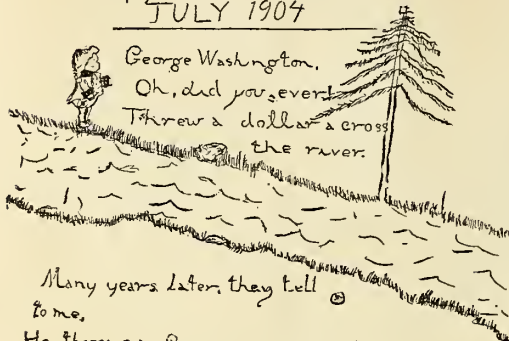 JULY 1904
George Washington,
Oh, did you, ever!
Threw a dollar a cross
the river.
Many years later, they tell
to me,
He threw